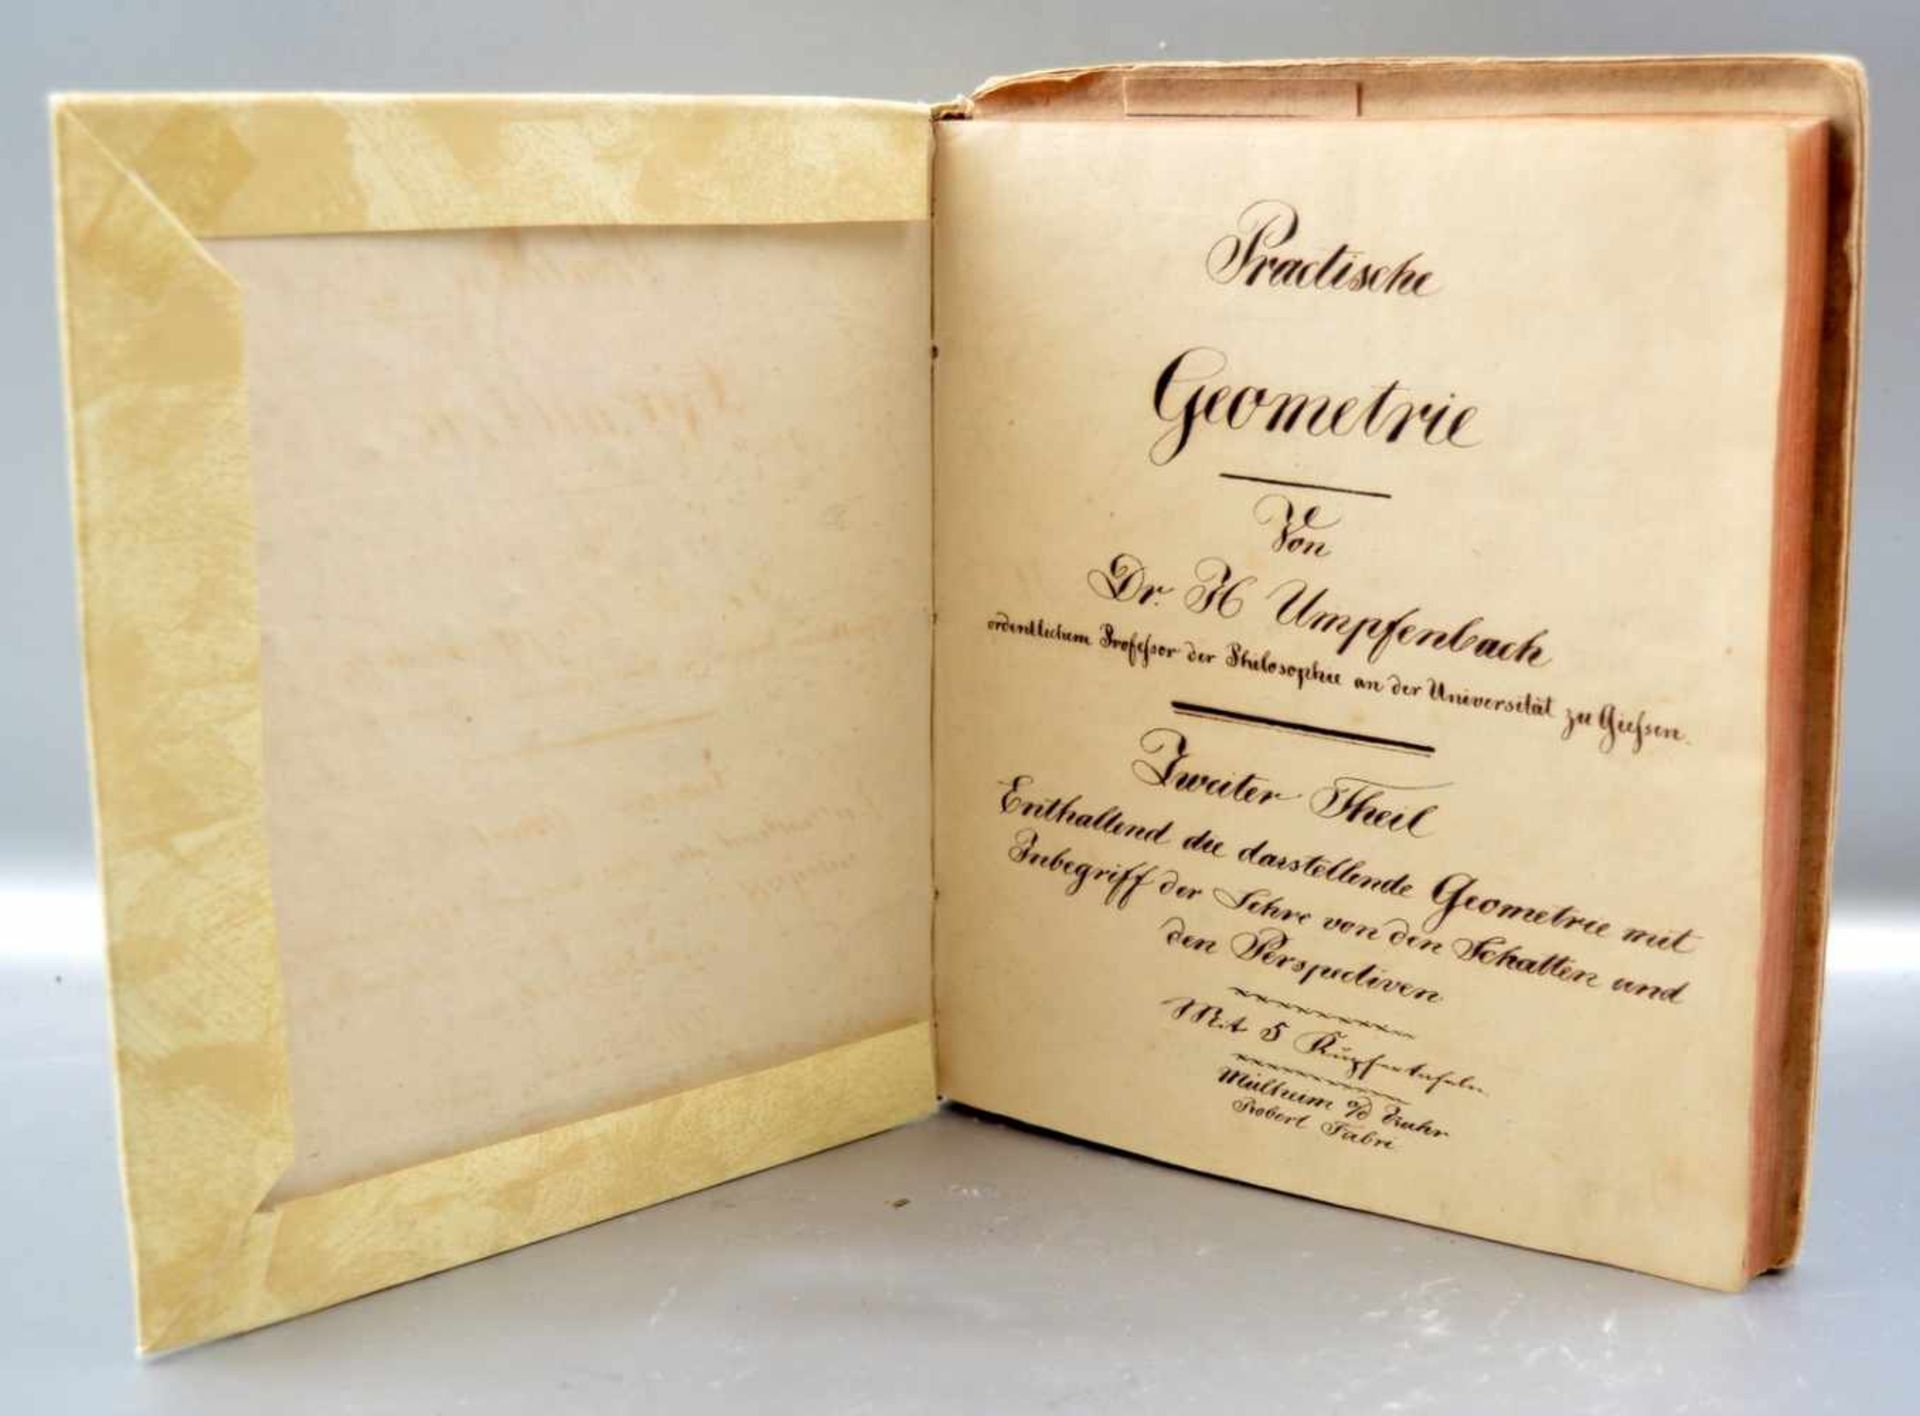 Practische
Geometrie
Von
Dr. H Umpfenbach
ordentlichem Profeſsor der Philosophie an der Universität zu Gieſsen.
Zweiter Theil
Enthaltend die darstellende Geometrie mit
Inbegriff der Lehre von den Schatten und
den Perspectiven
Mit 5 Kupfertafeln
Mülheim a/d Ruhr
Robert Fabri